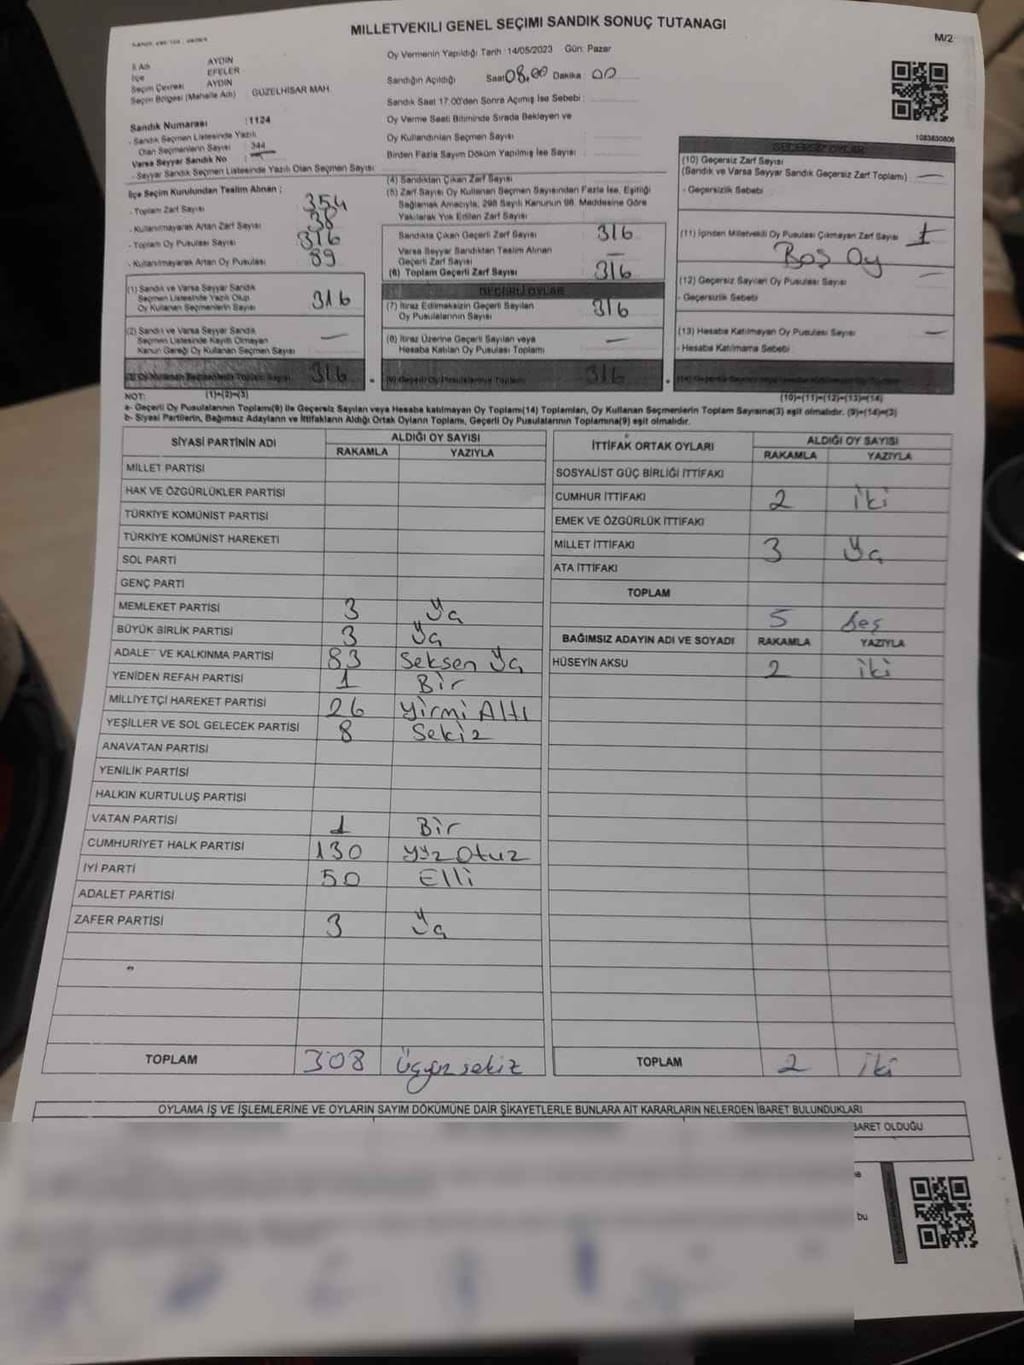 MİLLETVEKİLİ GENEL SEÇİMİ SANDIK SONUÇ TUTANAGI
M/2
İl Adı AYDIN
İlçe EFELER
Seçim Çevresi AYDIN
Seçim Bölgesi (Mahalle Adı) GÜZELHİSAR MAH.
Sandık Numarası :1124
- Sandık Seçmen Listesinde Yazılı
Olan Seçmenlerin Sayısı : 344
Varsa Seyyar Sandık No :
- Seyyar Sandık Seçmen Listesinde Yazılı Olan Seçmen Sayısı
Oy Vermenin Yapıldığı Tarih : 14/05/2023 Gün: Pazar
Sandığın Açıldığı Saat 08.00 Dakika : 00
Sandık Saat 17:00'den Sonra Açımış İse Sebebi :
Oy Verme Saati Bitiminde Sırada Bekleyen ve
Oy Kullandırılan Seçmen Sayısı
Birden Fazla Sayım Döküm Yapılmış İse Sayısı :
1083830806
İlçe Seçim Kurulundan Teslim Alınan ;
- Toplam Zarf Sayısı 354
- Kullanılmayarak Artan Zarf Sayısı 38
- Toplam Oy Pusulası Sayısı 316
- Kullanılmayarak Artan Oy Pusulası 89
(1) Sandık ve Varsa Seyyar Sandık
Seçmen Listesinde Yazılı Olup
Oy Kullanan Seçmenlerin Sayısı 316
(2) Sandık ve Varsa Seyyar Sandık
Seçmen Listesinde Kayıtlı Olmayan
Kanun Gereği Oy Kullanan Seçmen Sayısı —
(3) Oy Kullanan Seçmenlerin Toplam Sayısı 316
(1)+(2)=(3)
(4) Sandıktan Çıkan Zarf Sayısı
(5) Zarf Sayısı Oy Kullanan Seçmen Sayısından Fazla İse, Eşitliği
Sağlamak Amacıyla, 298 Sayılı Kanunun 98. Maddesine Göre
Yakılarak Yok Edilen Zarf Sayısı
Sandıkta Çıkan Geçerli Zarf Sayısı 316
Varsa Seyyar Sandıktan Teslim Alınan
Geçerli Zarf Sayısı —
(6) Toplam Geçerli Zarf Sayısı 316
GEÇERLİ OYLAR
(7) İtiraz Edilmeksizin Geçerli Sayılan
Oy Pusulalarının Sayısı 316
(8) İtiraz Üzerine Geçerli Sayılan veya
Hesaba Katılan Oy Pusulası Toplamı —
(9) Geçerli Oy Pusulalarının Toplamı 316
GEÇERSİZ OYLAR
(10) Geçersiz Zarf Sayısı
(Sandık ve Varsa Seyyar Sandık Geçersiz Zarf Toplamı) —
- Geçersizlik Sebebi
(11) İçinden Milletvekili Oy Pusulası Çıkmayan Zarf Sayısı 1
Boş Oy
(12) Geçersiz Sayılan Oy Pusulası Sayısı —
- Geçersizlik Sebebi
(13) Hesaba Katılmayan Oy Pusulası Sayısı —
- Hesaba Katılmama Sebebi
(10)+(11)+(12)+(13)=(14)
NOT:
a- Geçerli Oy Pusulalarının Toplamı(9) ile Geçersiz Sayılan veya Hesaba katılmayan Oy Toplamı(14) Toplamları, Oy Kullanan Seçmenlerin Toplam Sayısına(3) eşit olmalıdır. (9)+(14)=(3)
b- Siyasi Partilerin, Bağımsız Adayların ve İttifakların Aldığı Ortak Oyların Toplamı, Geçerli Oy Pusulalarının Toplamına(9) eşit olmalıdır.
SİYASİ PARTİNİN ADI ALDIĞI OY SAYISI
RAKAMLA YAZIYLA
MİLLET PARTİSİ
HAK VE ÖZGÜRLÜKLER PARTİSİ
TÜRKİYE KOMÜNİST PARTİSİ
TÜRKİYE KOMÜNİST HAREKETİ
SOL PARTİ
GENÇ PARTİ
MEMLEKET PARTİSİ 3 Üç
BÜYÜK BİRLİK PARTİSİ 3 Üç
ADALET VE KALKINMA PARTİSİ 83 Seksen Üç
YENİDEN REFAH PARTİSİ 1 Bir
MİLLİYETÇİ HAREKET PARTİSİ 26 Yirmi Altı
YEŞİLLER VE SOL GELECEK PARTİSİ 8 Sekiz
ANAVATAN PARTİSİ
YENİLİK PARTİSİ
HALKIN KURTULUŞ PARTİSİ
VATAN PARTİSİ 1 Bir
CUMHURİYET HALK PARTİSİ 130 Yüz Otuz
İYİ PARTİ 50 Elli
ADALET PARTİSİ
ZAFER PARTİSİ 3 Üç
TOPLAM 308 Üçyüz sekiz
İTTİFAK ORTAK OYLARI ALDIĞI OY SAYISI
RAKAMLA YAZIYLA
SOSYALİST GÜÇ BİRLİĞİ İTTİFAKI
CUMHUR İTTİFAKI 2 İki
EMEK VE ÖZGÜRLÜK İTTİFAKI
MİLLET İTTİFAKI 3 Üç
ATA İTTİFAKI
TOPLAM 5 Beş
BAĞIMSIZ ADAYIN ADI VE SOYADI RAKAMLA YAZIYLA
HÜSEYİN AKSU 2 iki
TOPLAM 2 İki
OYLAMA İŞ VE İŞLEMLERİNE VE OYLARIN SAYIM DÖKÜMÜNE DAİR ŞİKAYETLERLE BUNLARA AİT KARARLARIN NELERDEN İBARET BULUNDUKLARI
BARET OLDUĞU
bu